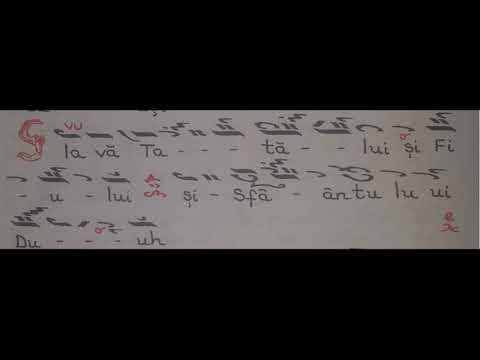 Sla vă Ta - - - tă - - lui și Fi
- u - lui și - Sfâ - ântu lu ui
Du - - - uh